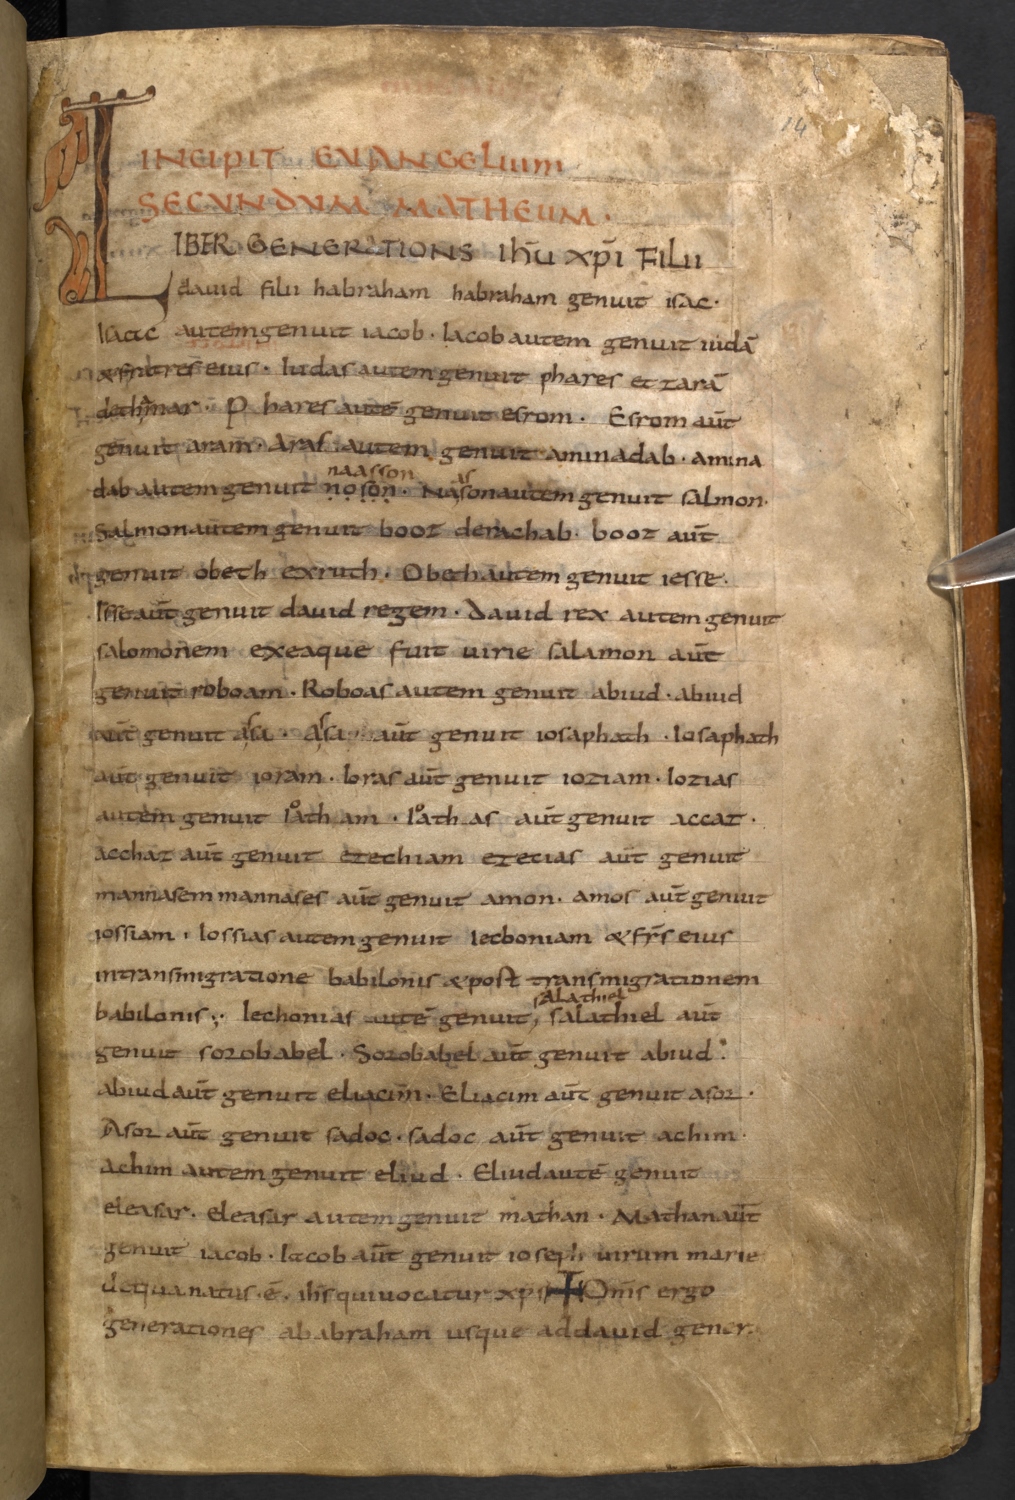 14
INCIPIT EVANGELIUM
SECVNDVM MATHEUM.
LIBER GENERATIONS Ihū xpī FILII
dauid filii habraham habraham genuit isac·
Isaac autem genuit iacob· Iacob autem genuit iudā
&fratres eius· Iudas autem genuit phares et zarā
dethamar· Phares autē genuit esrom· Esrom aūt
genuit aram· Aras autem genuit aminadab· amina
naasson as
dab autem genuit noson· Nasonautem genuit salmon·
Salmonautem genuit booz derachab· booz aūt
genuit obeth exruth· Obeth autem genuit iesse·
Isse aūt genuit dauid regem· Dauid rex autem genuit
salomonem exeaque fuit urie salamon aūt
genuit roboam· Roboas autem genuit abiud· abiud
aūt genuit asa· Asa aūt genuit iosaphath· Iosaphath
aūt genuit ioram· Ioras aūt genuit ioziam· Iozias
autem genuit Ioatham· Ioathas aūt genuit accaz·
acchaz aūt genuit ezechiam ezecias aūt genuit
mannasem mannases aūt genuit amon· amos aūt genuit
iossiam· Iossias autem genuit Iechoniam &fr̄s eius
intransmigratione babilonis &post transmigrationem
salathiel
babilonis; Iechonias autē genuit, salathiel aūt
genuit sorobabel· Sorobabel aūt genuit abiud·
abiud aūt genuit eliacim· Eliacim aūt genuit asor·
Asor aūt genuit sadoc· sadoc aūt genuit achim·
achim autem genuit eliud· Eliud autē genuit
eleasar· eleasar autem genuit mathan· Mathan aūt
genuit iacob· Iacob aūt genuit ioseph uirum marie
dequa natus ē· ihs̄ qui uocatur xps̄ Om̄s ergo
generationes ab abraham usque addauid gener